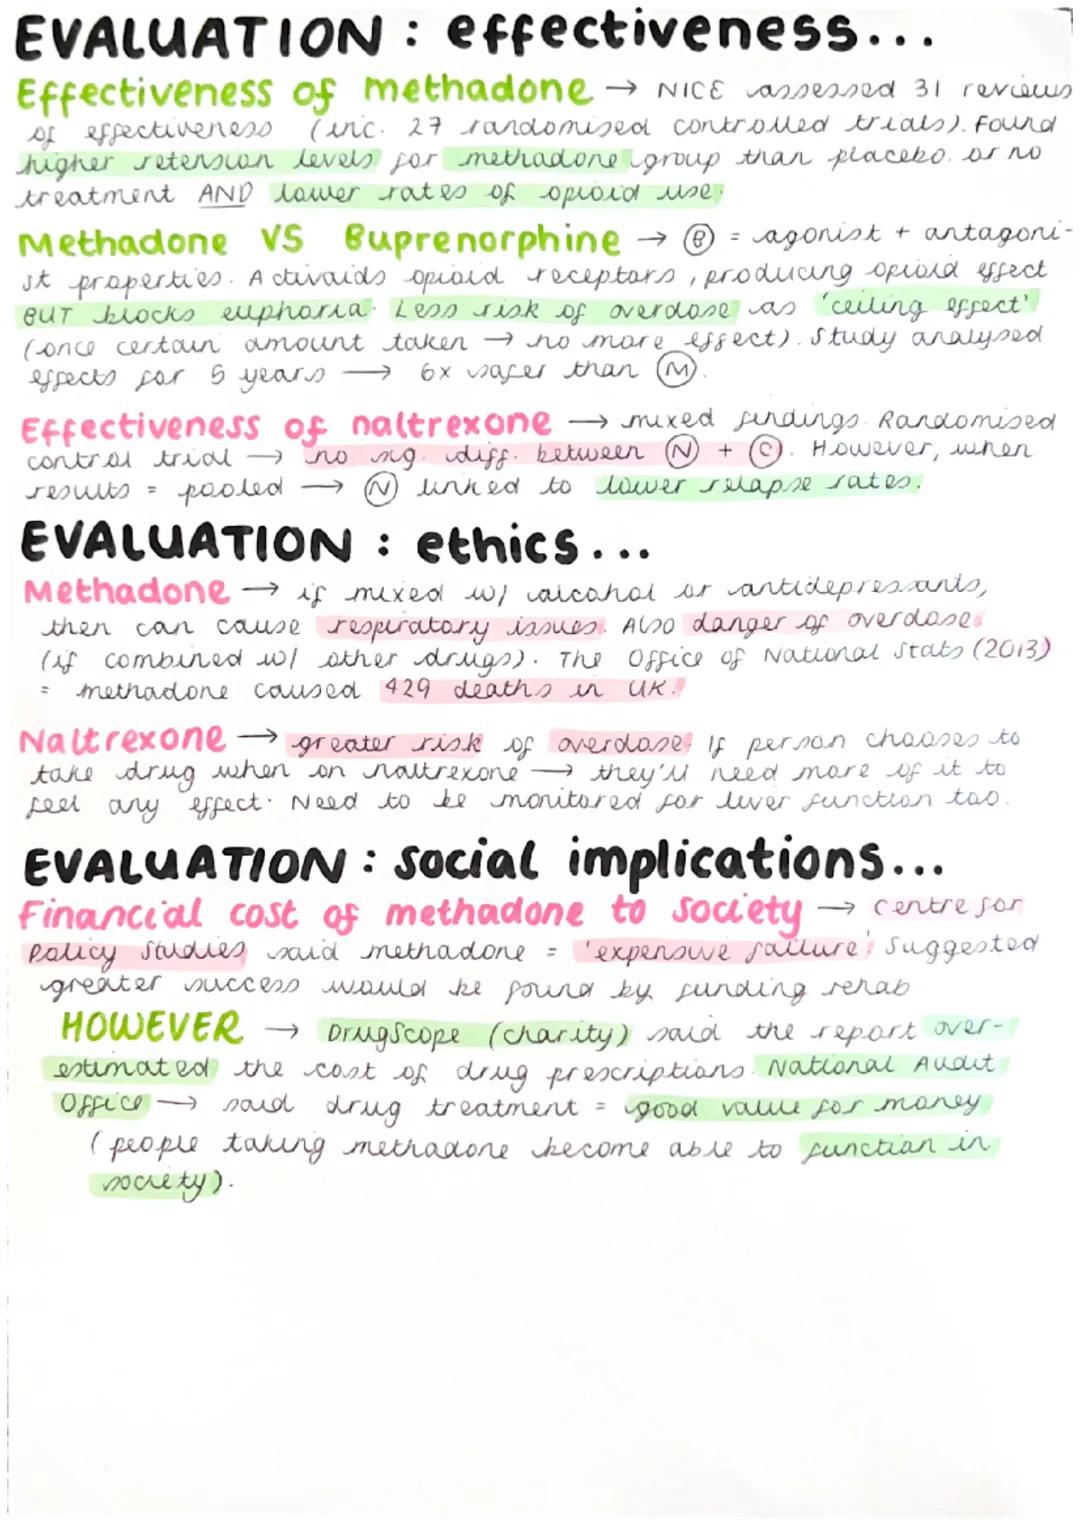 EVALUATION : effectiveness...
Effectiveness of methadone → NICE assessed 31 reviews
of effectiveness (inc. 27 randomised controlled trials). Found
higher retension levels for methadone group than placebo or no
treatment AND lower rates of opioid use.
Methadone VS Buprenorphine → Ⓑ = agonist + antagoni-
st properties. Activaids opioid receptors, producing opioid effect
BUT blocks euphoria. Less risk of overdose as 'ceiling effect'
(once certain amount taken → no more effect). Study analysed
effects for 5 years → 6x safer than Ⓜ.
Effectiveness of naltrexone → mixed findings. Randomised
control trial → no sig. diff. between Ⓝ + Ⓒ. However, when
results = pooled → Ⓝ linked to lower relapse rates.
EVALUATION : ethics...
Methadone → if mixed w/ alcohol or antidepressants,
then can cause respiratory issues. Also danger of overdose.
(if combined w/ other drugs). The Office of National Stats (2013)
= methadone caused 429 deaths in UK.
Naltrexone → greater risk of overdose. If person chooses to
take drug when on naltrexone → they'll need more of it to
feel any effect. Need to be monitored for liver function too.
EVALUATION : social implications...
Financial cost of methadone to society → centre for
Policy Studies said methadone = 'expensive failure'. Suggested
greater success would be found by funding rehab
HOWEVER → DrugScope (charity) said the report over-
estimated the cost of drug prescriptions. National Audit
Office → said drug treatment = good value for money
(people taking methadone become able to function in
society).